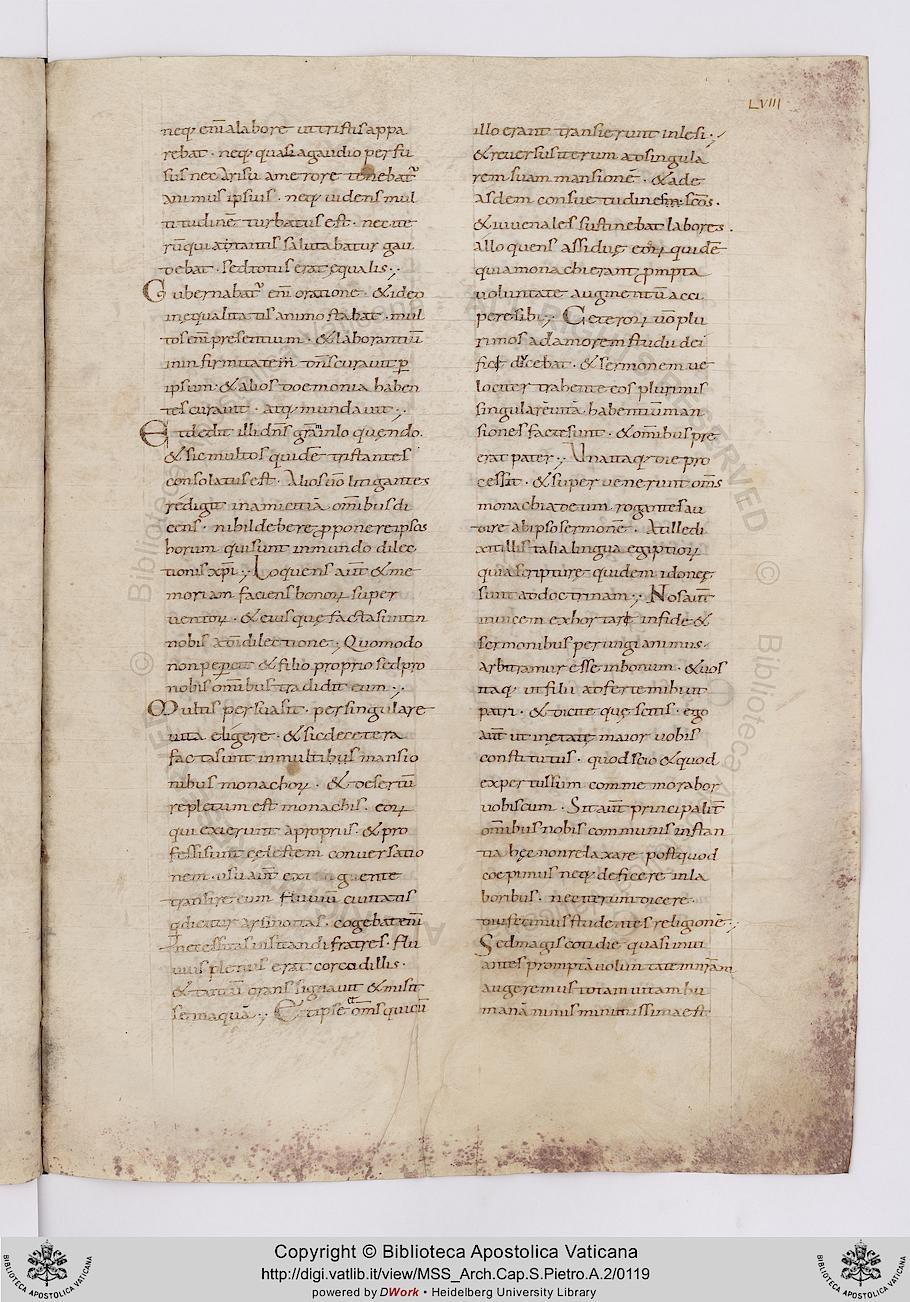 LVIII
neq; eni alabore ut tristis appa
rebat · neq; quasi agaudio perfu
sus nec arisu amerore tenebat᷑
animus ipsius · neq; uidens mul
titudinē turbatus est · nec ite
rū qui a tantis salutabatur gau
debat · sed totus erat equalis ·,
Gubernabat᷑ eni oratione · & ideo
inequalitatis animo stabat · mul
tos eni presentium · & laborantiū
in infirmitatem dn̄s curauit p̱
ipsum · & alios doemonia haben
tes curauit · atq; mundauit ·,
Et dedit illi dn̄s gr̄am inloquendo ·
& sic multos quidē tristantes
consolatus est · Alios u̅o litigantes
redigit inamicitiā omībus di
cens · nihil debere p̱ponere ipsos
horum qui sunt inmundo dilec
tionis xp̄i ·, Loquens aut̄ & me
moriam faciens bonoꝝ super
uentoꝝ · & eius que facta sunt in
nobis a dō dilectione ·, Quomodo
non pepercit & filio proprio sed pro
nobis omībus tradidit eum ·,
Multis persuasit · per singulare
uita eligere · & sic de cetera
facta sunt in multibus mansio
nibus monachoꝝ · & desertū
repletum est monachis · eoꝝ
qui exierunt a propriis · & pro
fessi sunt celestem conuersatio
nem · usu aut̄ exi gente
transire eum fluuiū ciuitatis
q dicitur arsinoitas · cogebat eni
necessitas uisitandi fratres · flu
uius plenus erat corcodillis ·
& tantū orans signauit & misit
se in aquā ·, Et ipse & om̄s qui cū
illo erant transierunt inlesi ·,
& reuersus iterum ad singula
rem suam mansionē · & ade
asdem consuetudines scōs ·
& iuuenales sustinebat labores ·
alloquens assidue eoꝝ quidē
qui a monachi erant p̱mpta
uoluntate augmentū acci
pere sibi ·, Ceteroꝝ uō plu
rimos ad amorem studii dei
fieri dicebat · & sermonem ue
lociter trahente eos plurimis
singularē uitā habentium man
siones facte sunt · & omībus pre
erat pater ·, Una itaq; die pro
cessit · & superuenerunt om̄s
monachi ad eum rogantes au
dire ab ipso sermonē · At ille di
xit illis talia lingua egiptioꝝ
quia scripture quidem idonee
sunt ad doctrinam ·, Nos aut̄
inuicem exhortari in fide &
sermonibus perungi animus
arbitramur esse in bonum · & uos
itaq; ut filii adferte mihi ut
patri · & dicite que scitis · ego
aut̄ ut in etate maior uobis
constitutus · quod scio & quod
expertus sum commemorabor
uobiscum · Sit aut̄ principalit̄
omībus nobis communis instan
tia hec non relaxare postquod
coepimus neq; deficere in la
boribus · nec iterum dicere ·
diu fecimus studentes religionē ·,
Sed magis cotidie quasi initi
antes promptā uoluntatem nr̄am
augeremus totam uitam hu
manā nimis minutissima est
Copyright © Biblioteca Apostolica Vaticana
http://digi.vatlib.it/view/MSS_Arch.Cap.S.Pietro.A.2/0119
powered by DWork • Heidelberg University Library